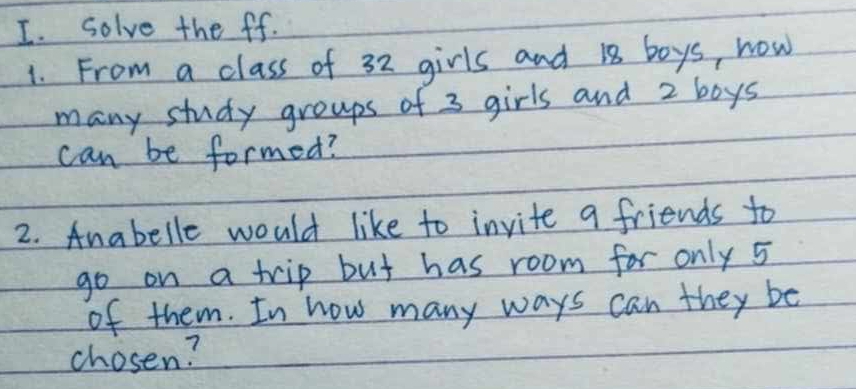 I. Solve the ff.
1. From a class of 32 girls and 18 boys, how
many study groups of 3 girls and 2 boys
can be formed?
2. Anabelle would like to invite 9 friends to
go on a trip but has room for only 5
of them. In how many ways can they be
chosen?